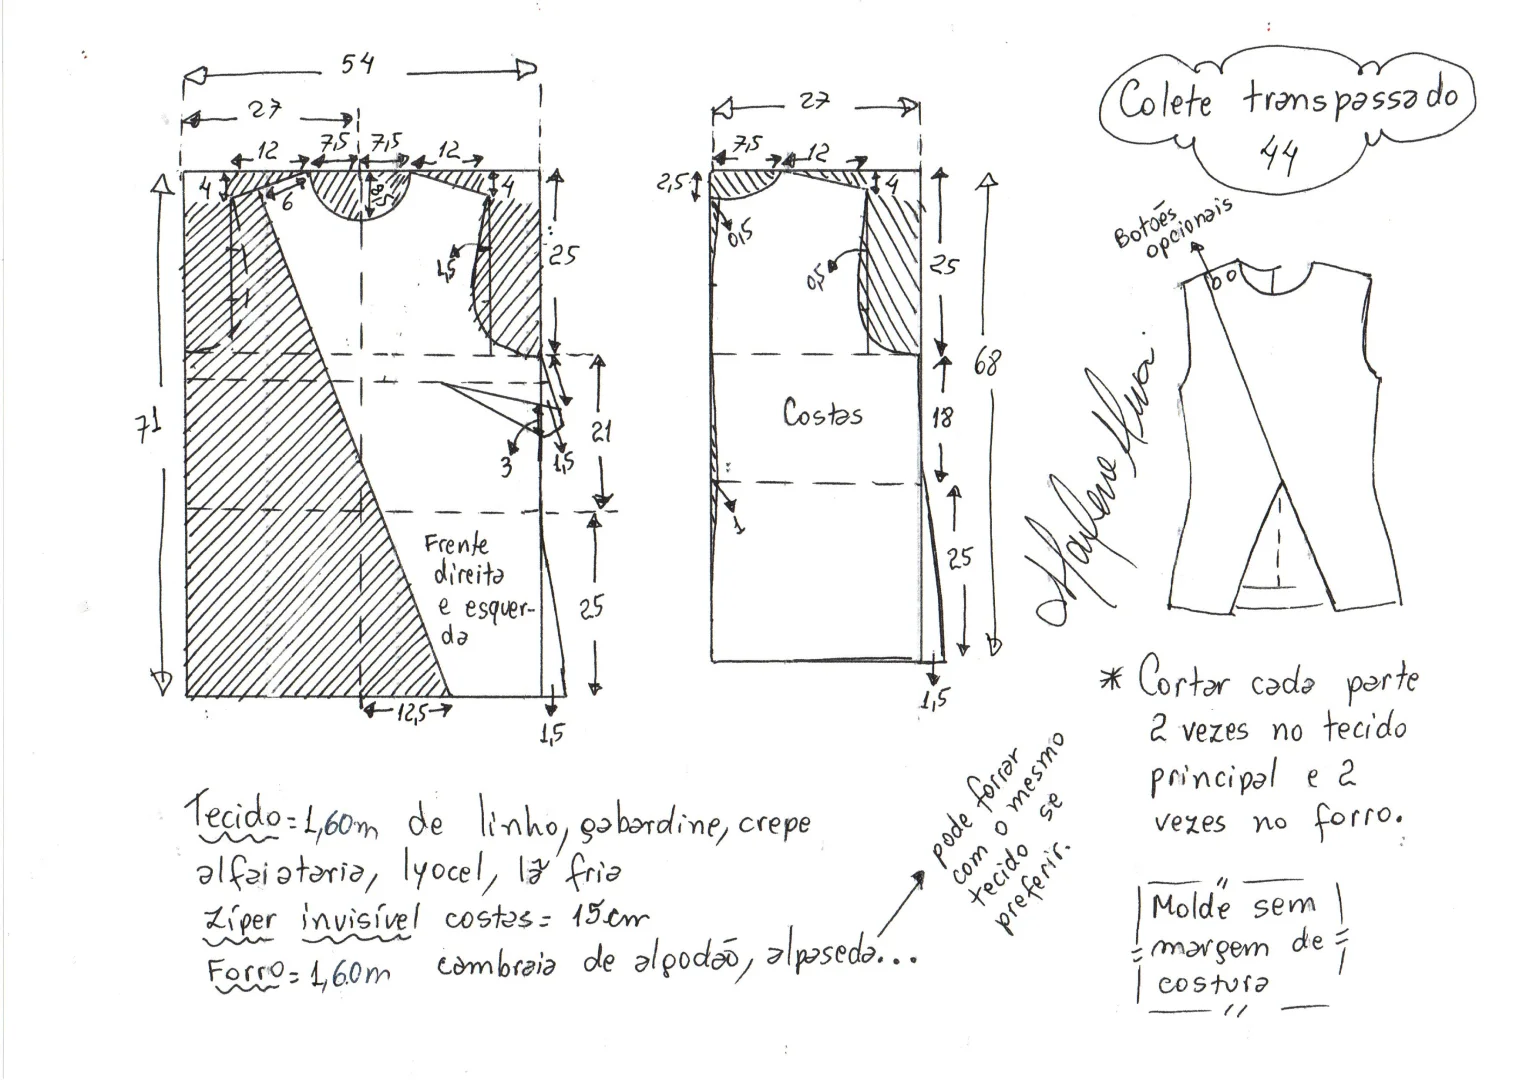 54
27
12
7,5
7,5
12
4
6
8,5
4
1,5
25
71
3
1,5
21
Frente
direita
e esquer-
da
25
12,5
1,5
27
7,5
12
2,5
4
0,5
0,5
25
68
Costas
18
1
25
1,5
Colete transpassado
44
Botões
opcionais
* Cortar cada parte
2 vezes no tecido
principal e 2
vezes no forro.
Molde sem
margem de
costura
Tecido = 1,60m de linho, gabardine, crepe
alfaiataria, lyocel, lã fria
Zíper invisível costas = 15cm
Forro = 1,60m cambraia de algodão, alpaseda...
pode forrar
com o mesmo
tecido se
preferir.